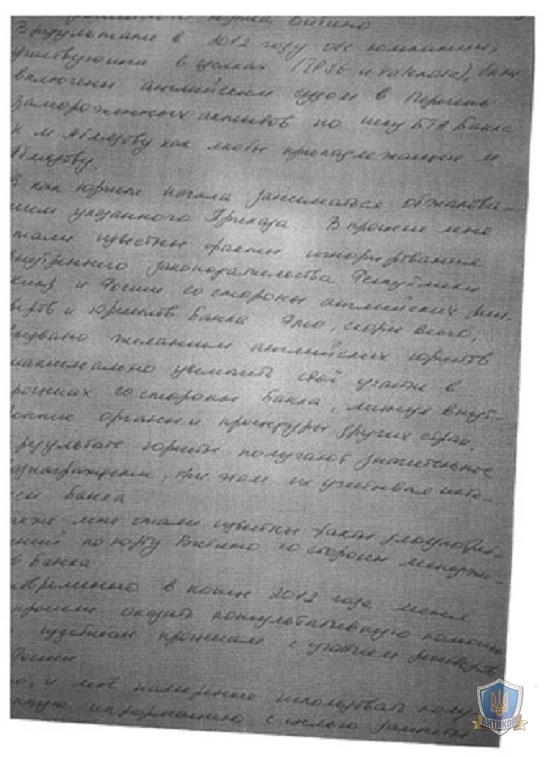 порта Витино
В результате в 2012 году обе компании,
участвующие в сделках ( и Valenosa), были
включены английским судом в перечень
замороженных активов по иску БТА Банка
к М. Аблязову как якобы принадлежащие М.
Аблязову.
как юрист начала заниматься обжалова-
нием указанного Приказа. В процессе мне
стали известны факты игнорирования
внутреннего законодательства Республики
и России со стороны английских
и юристов Банка. Это, скорее всего,
вызвано желанием английских юристов
максимально увеличить своё участие в
процессах со стороны Банка, минуя внут-
ренние органы и процедуры других стран.
результате юристы получают значительное
вознаграждение, при этом не учитывая инте-
ресы Банка
также мне стали известны факты злоупотреб-
лений по порту Витино со стороны менедже-
в Банка
одновременно в конце 2012 года меня
просили оказать консультативную помощь
судебным процессам с участием
России
и моё намерение использовать
информацию с целью
АНТИКОР